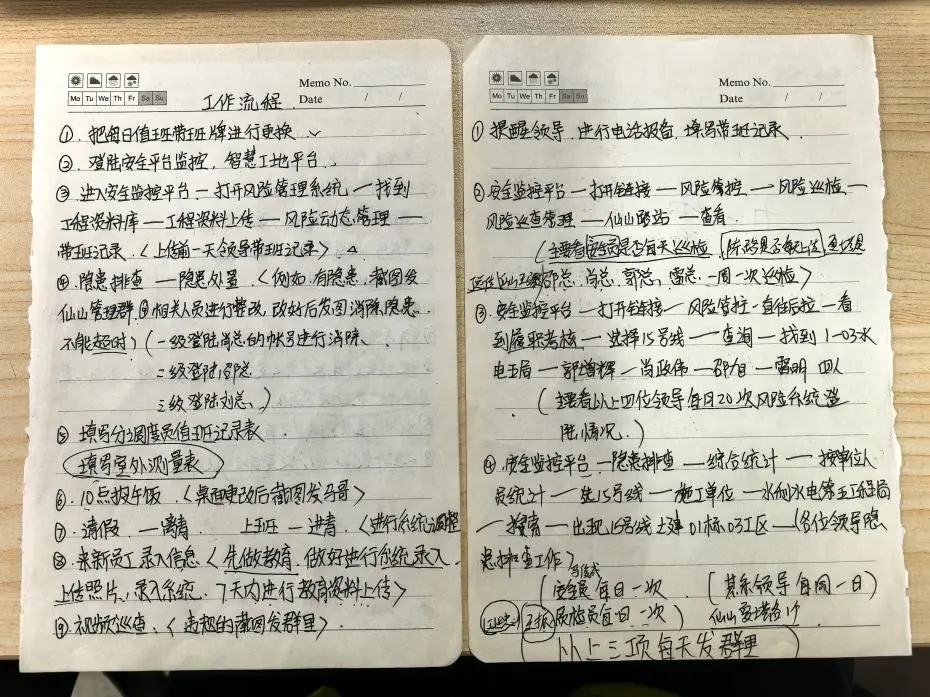 Memo No.
Mo Tu We Th Fr Sa Su
Date / /
工作流程
①. 把每日值班带班牌进行更换
②. 登陆安全平台监控, 智慧工地平台.
③ 进入安全监控平台 — 打开风险管理系统 — 找到
工程资料库 — 工程资料上传 — 风险动态管理 —
带班记录.〈上传前一天领导带班记录〉
④ 隐患排查 — 隐患处置 〈例如, 有隐患, 截图发
仙山管理群 相关人员进行整改, 改好后发图消除隐患.
不能超时〉(一级登陆尚总的帐号进行消除.
二级登陆邵总
三级登陆刘总.)
⑤ 填写分调度员值班记录表
填写室外测量表
⑥. 10点报午饭 〈桌面更改后截图发马哥〉
⑦. 请假 — 离青 上班 — 进青.〈进行系统调整
⑧. 来新员工录入信息〈先做教育, 做好进行系统录入.
上传照片、录入系统. 7天内进行教育资料上传〉
⑨. 视频巡查.〈 的截图发群里〉
Memo No.
Mo Tu We Th Fr Sa Su
Date / /
① 提醒领导, 进行电话报备, 填写带班记录.
② 安全监控平台 — 打开链接 — 风险管控 — 风险巡检 —
风险巡查管理 — 仙山路站 — 查看.
(主要看 是否每天巡检
邵总, 尚总, 郭总, 雷总, 一周一次巡检〉
③. 安全监控平台 — 打开链接 — 风险管控 — 直往后拉 — 看
到履职考核 — 选择15号线 — 查询 — 找到 1-03水
电五局 — 郭增辉 — 尚政伟 — 邵旭 — 雷明 四人
(主要看以上四位领导每日20次风险系统登
陆情况.)
④. 安全监控平台 — 隐患排查 — 综合统计 — 按单位人
员统计 — 选15号线 — 施工单位 — 水利水电第五工程局
— 搜索 — 出现15号线土建01标03工区 — (各位领导隐
患排查工作〉
(安全员 每日一次 (其余领导每周一日)
质检员每日一次)
(以上三项每天发群里)